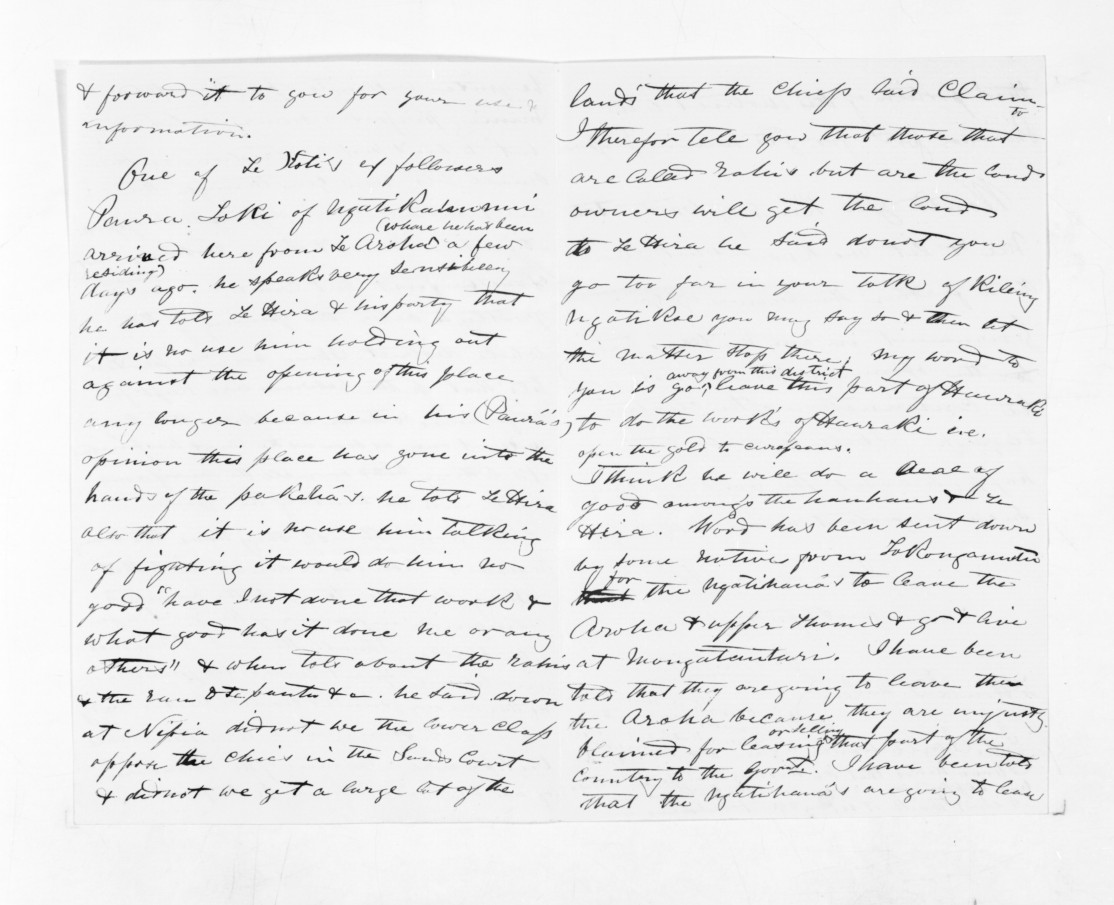 & forward it to you for your use &
information.
One of Te Kotis ex followers
Paura Toki of Ngatikahunui
(whare he has been
arrived here from Te Aroha) a few
residing)
days ago. he speaks very sensibley
he has told Te Hira & his party that
it is no use him holding out
against the opening of this place
any longer because in his (Paura's)
opinion this place has gone into the
hands of the pakehas. he told Te Hira
also that it is no use him talking
of fighting it would do him no
good "have I not done that work &
what good has it done me or any
others" & when told about the rahis
& the &a. he said down
at Nipia did not we the lower class
oppose the chiefs in the Lands Court
& did not we get a large lot of the
lands that the chiefs said Claim
to
I therefor tele you that those that
are caled rahis but are the land
owners will get the land
to Te Hira he said do not you
go too far in your talk of kileing
Ngatikoe you may say so & then let
the matter stop there, my word to
away from this district
you is go, leave this part of Hauraki
to do the works of Hauraki i.e.
open the gold to europeans.
I think he will do a deal of
good amongs the hauhaus & Te
Hira. Word has been sent down
by some natives from Tokangamutu
for
the Ngatihaua's to leave the
Aroha & upper Thames & go & live
at Mangatautari. I have been
told that they are going to leave
the Aroha because they are unjustly
or selling
blaimed for leasing that part of the
country to the Govmt. I have been told
that the Ngatihaua's are going to lease